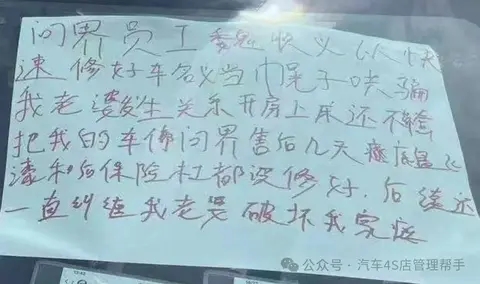 问界员工 以快
速修好车 当 子 骗
我老婆发生关系开房上床还不
把我的车停问界售后几天 底盘
和后保险杠都没修好 后续还
一直纠缠我老婆破坏我家庭
公众号·汽车4S店管理帮手